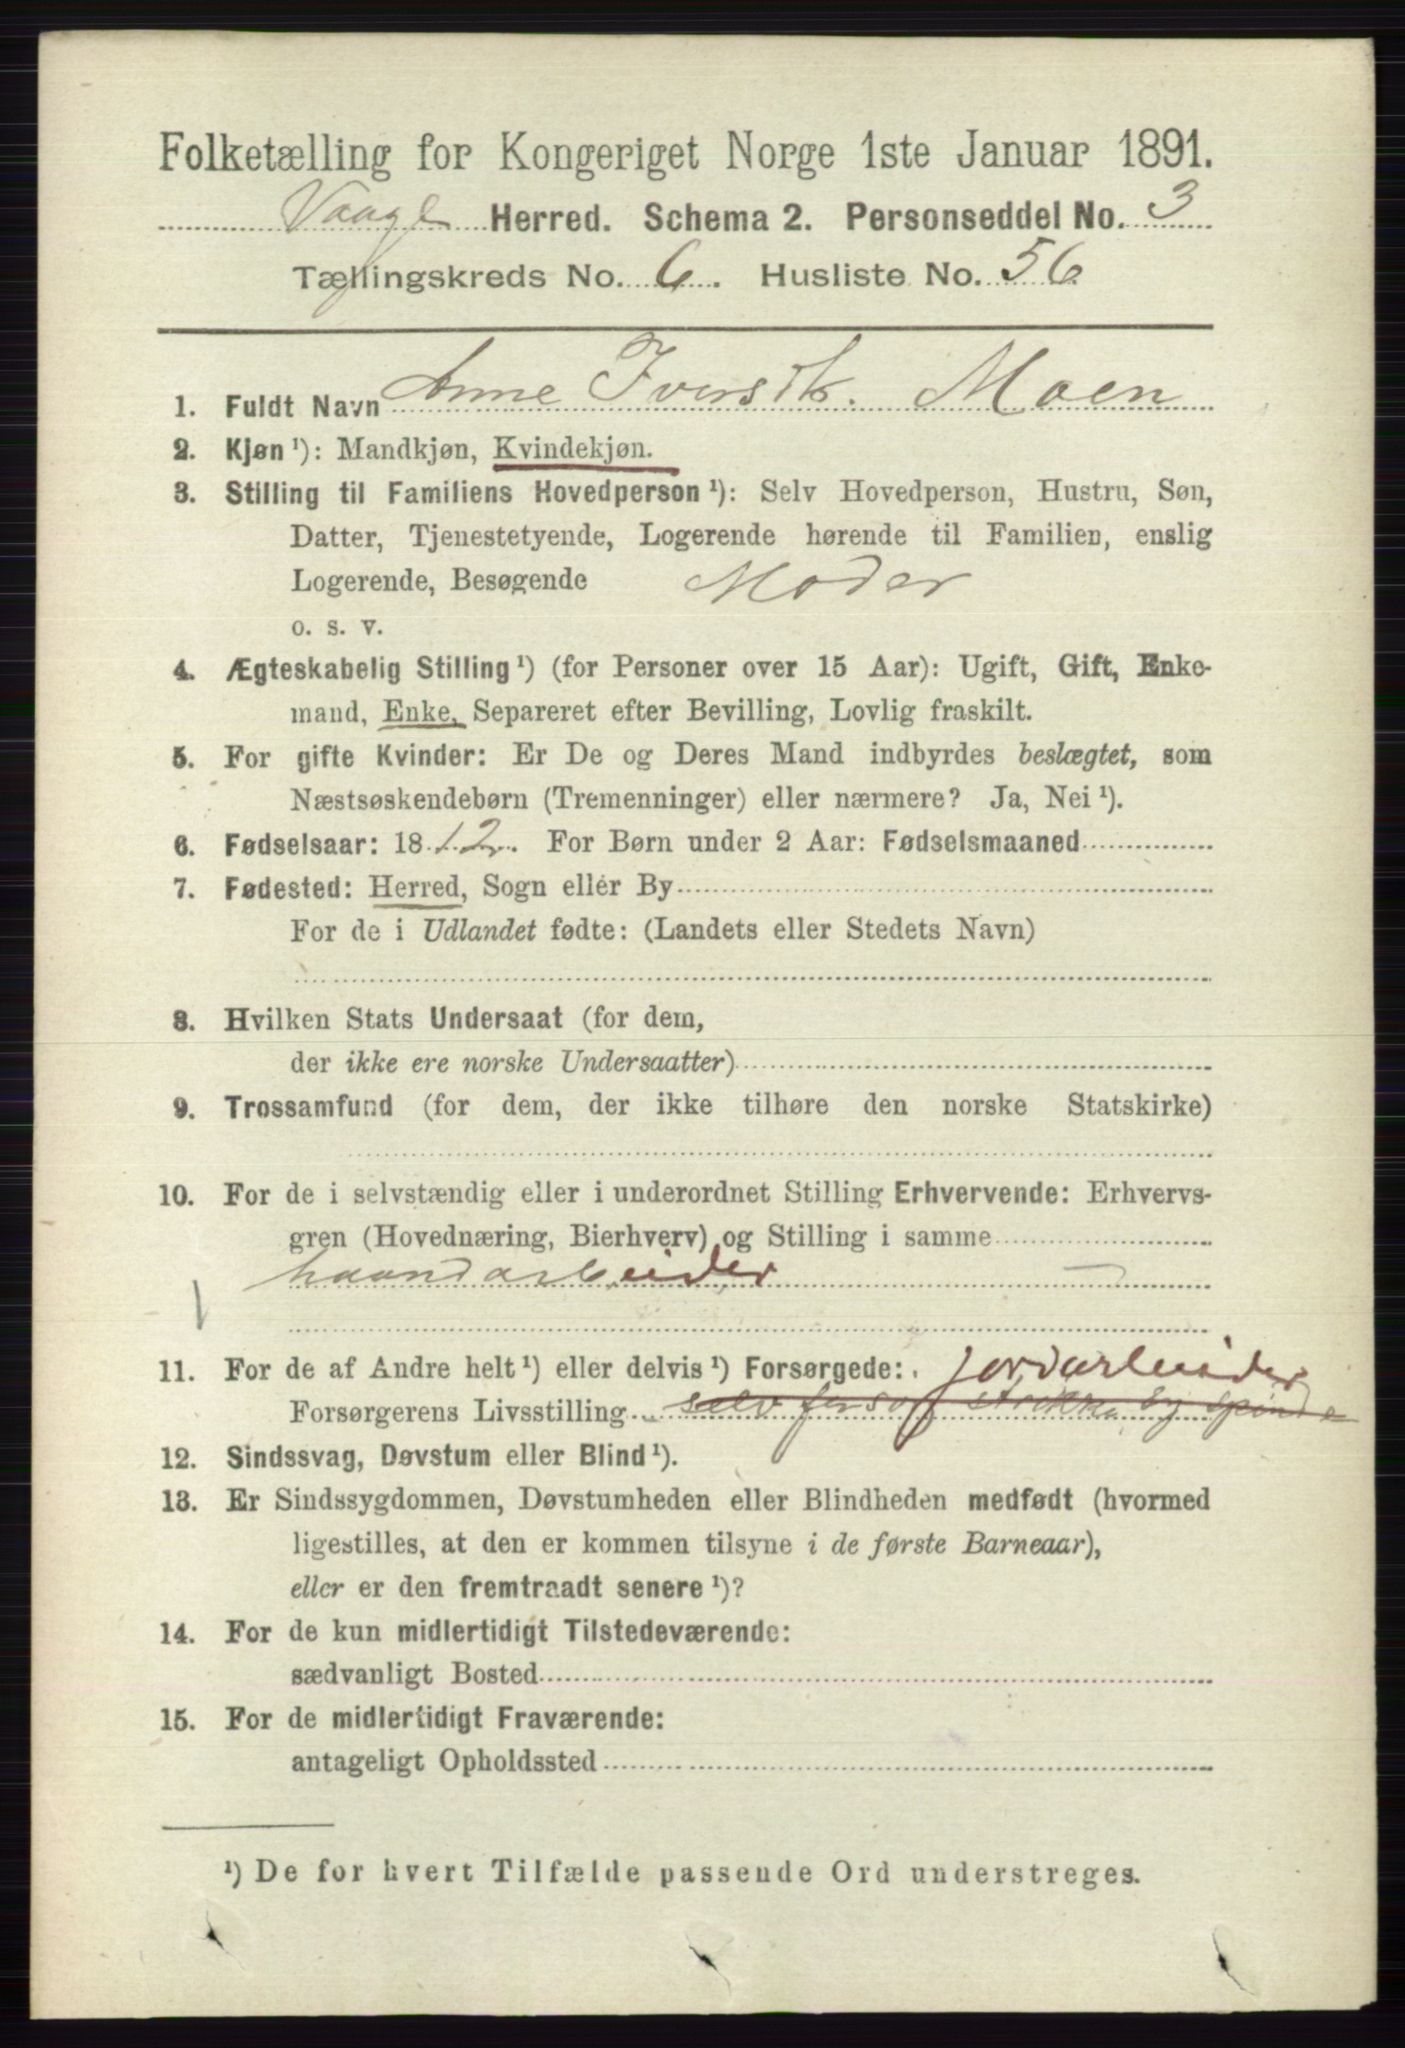 Folketælling for Kongeriget Norge 1ste Januar 1891.
Vaage Herred. Schema 2. Personseddel No. 3
Tællingskreds No. 6. Husliste No. 56
1. Fuldt Navn Anne Iversdtr. Moen
2. Kjøn ¹): Mandkjøn, Kvindekjøn.
3. Stilling til Familiens Hovedperson ¹): Selv Hovedperson, Hustru, Søn,
Datter, Tjenestetyende, Logerende hørende til Familien, enslig
Logerende, Besøgende Moder
o. s. v.
4. Ægteskabelig Stilling ¹) (for Personer over 15 Aar): Ugift, Gift, Enke-
mand, Enke, Separeret efter Bevilling, Lovlig fraskilt.
5. For gifte Kvinder: Er De og Deres Mand indbyrdes beslægtet, som
Næstsøskendebørn (Tremenninger) eller nærmere? Ja, Nei ¹).
6. Fødselsaar: 1812. For Børn under 2 Aar: Fødselsmaaned
7. Fødested: Herred, Sogn eller By
For de i Udlandet fødte: (Landets eller Stedets Navn)
8. Hvilken Stats Undersaat (for dem,
der ikke ere norske Undersaatter)
9. Trossamfund (for dem, der ikke tilhøre den norske Statskirke)
10. For de i selvstændig eller i underordnet Stilling Erhvervende: Erhvervs-
gren (Hovednæring, Bierhverv) og Stilling i samme
haandarbeider
11. For de af Andre helt ¹) eller delvis ¹) Forsørgede: jordarbeider
Forsørgerens Livsstilling selv strikke og spinde
12. Sindssvag, Døvstum eller Blind ¹).
13. Er Sindssygdommen, Døvstumheden eller Blindheden medfødt (hvormed
ligestilles, at den er kommen tilsyne i de første Barneaar),
eller er den fremtraadt senere ¹)?
14. For de kun midlertidigt Tilstedeværende:
sædvanligt Bosted
15. For de midlertidigt Fraværende:
antageligt Opholdssted
¹) De for hvert Tilfælde passende Ord understreges.